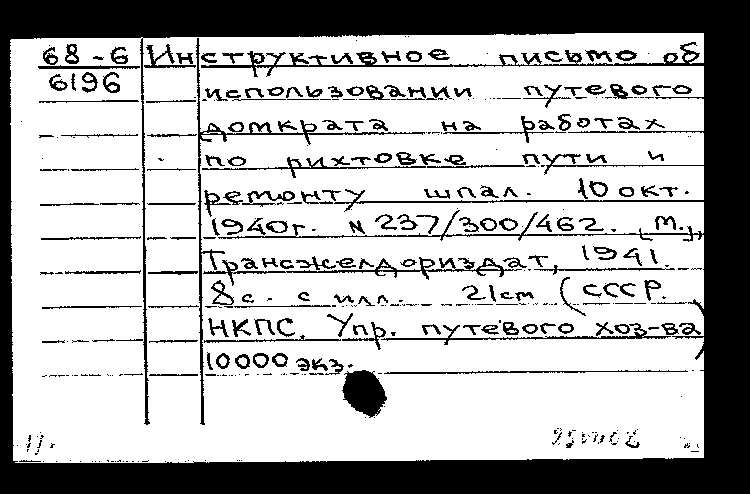 68-6 Инструктивное письмо об
6196 использовании путевого
домкрата на работах
по рихтовке пути и
ремонту шпал. 10 окт.
1940г. N 237/300/462. [М.],
Трансжелдориздат, 1941.
8с. с илл. 21см (СССР.
НКПС. Упр. путевого хоз-ва)
10000 экз.